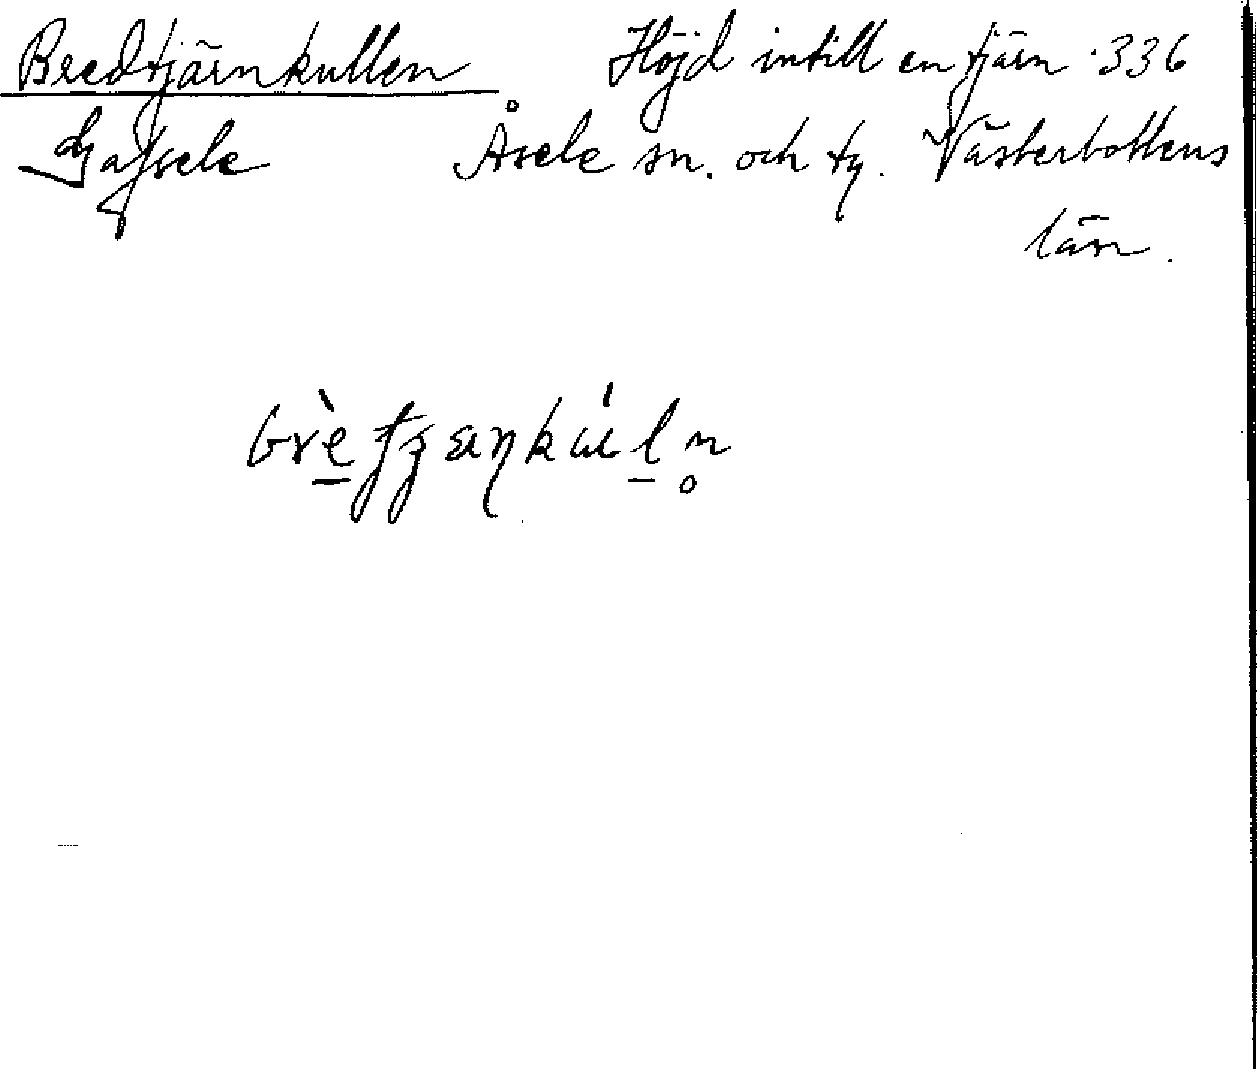 Bredtjärnkullen Höjd intill en tjärn 336
Gafsele Åsele sn. och tg. Västerbottens
län.